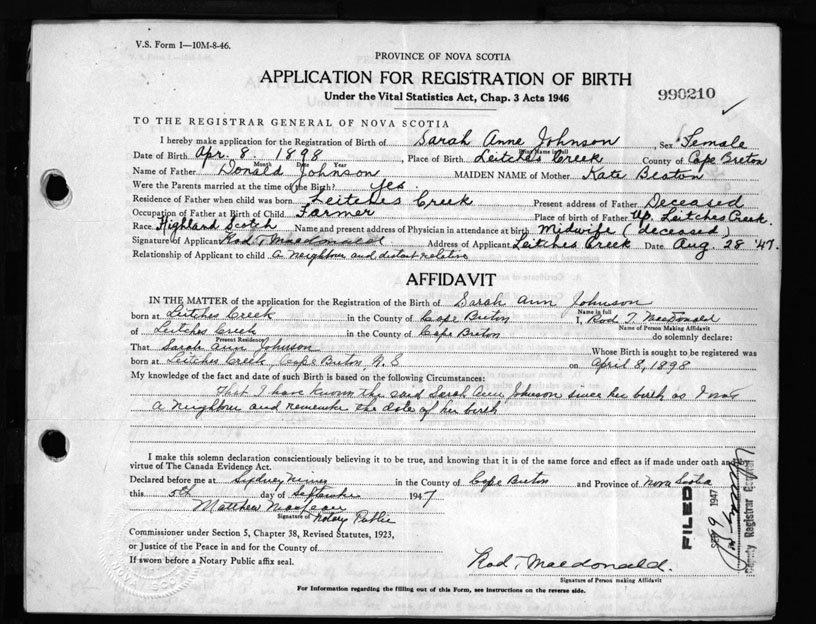 V.S. Form 1—10M-8-46.
PROVINCE OF NOVA SCOTIA
APPLICATION FOR REGISTRATION OF BIRTH
Under the Vital Statistics Act, Chap. 3 Acts 1946
990210
TO THE REGISTRAR GENERAL OF NOVA SCOTIA
I hereby make application for the Registration of Birth of Sarah Anne Johnson, Sex Female
Print Name in full
Date of Birth Apr. 8. 1898, Place of Birth Leitches Creek County of Cape Breton
Month Date Year
Name of Father Donald Johnson MAIDEN NAME of Mother Kate Beaton
Were the Parents married at the time of the Birth? yes.
Residence of Father when child was born Leitches Creek Present address of Father Deceased
Occupation of Father at Birth of Child Farmer Place of birth of Father Up. Leitches Creek.
Race Highland Scotch Name and present address of Physician in attendance at birth Midwife (deceased)
Signature of Applicant Rod T Macdonald Address of Applicant Leitches Creek Date Aug. 28 '47.
Relationship of Applicant to child A neighbour and distant relative
AFFIDAVIT
IN THE MATTER of the application for the Registration of the Birth of Sarah Ann Johnson
Name in full
born at Leitches Creek in the County of Cape Breton I, Rod T. MacDonald
Name of Person Making Affidavit
of Leitches Creek in the County of Cape Breton do solemnly declare:
Present Residence
That Sarah Ann Johnson Whose Birth is sought to be registered was
born at Leitches Creek, Cape Breton, N.S on April 8, 1898
My knowledge of the fact and date of such Birth is based on the following Circumstances:
That I have known the said Sarah Ann Johnson since her birth as I was
a neighbour and remember the date of her birth
And I make this solemn declaration conscientiously believing it to be true, and knowing that it is of the same force and effect as if made under oath and by
virtue of The Canada Evidence Act.
Declared before me at Sydney Mines in the County of Cape Breton and Province of Nova Scotia
this 5th day of September 1947
Matthew MacLean
Signature of Notary Public
Commissioner under Section 5, Chapter 38, Revised Statutes, 1923,
or Justice of the Peace in and for the County of
If sworn before a Notary Public affix seal.
Rod T Macdonald.
Signature of Person making Affidavit
For Information regarding the filling out of this Form, see Instructions on the reverse side.
FILED
SEP 9 1947
Deputy Registrar General